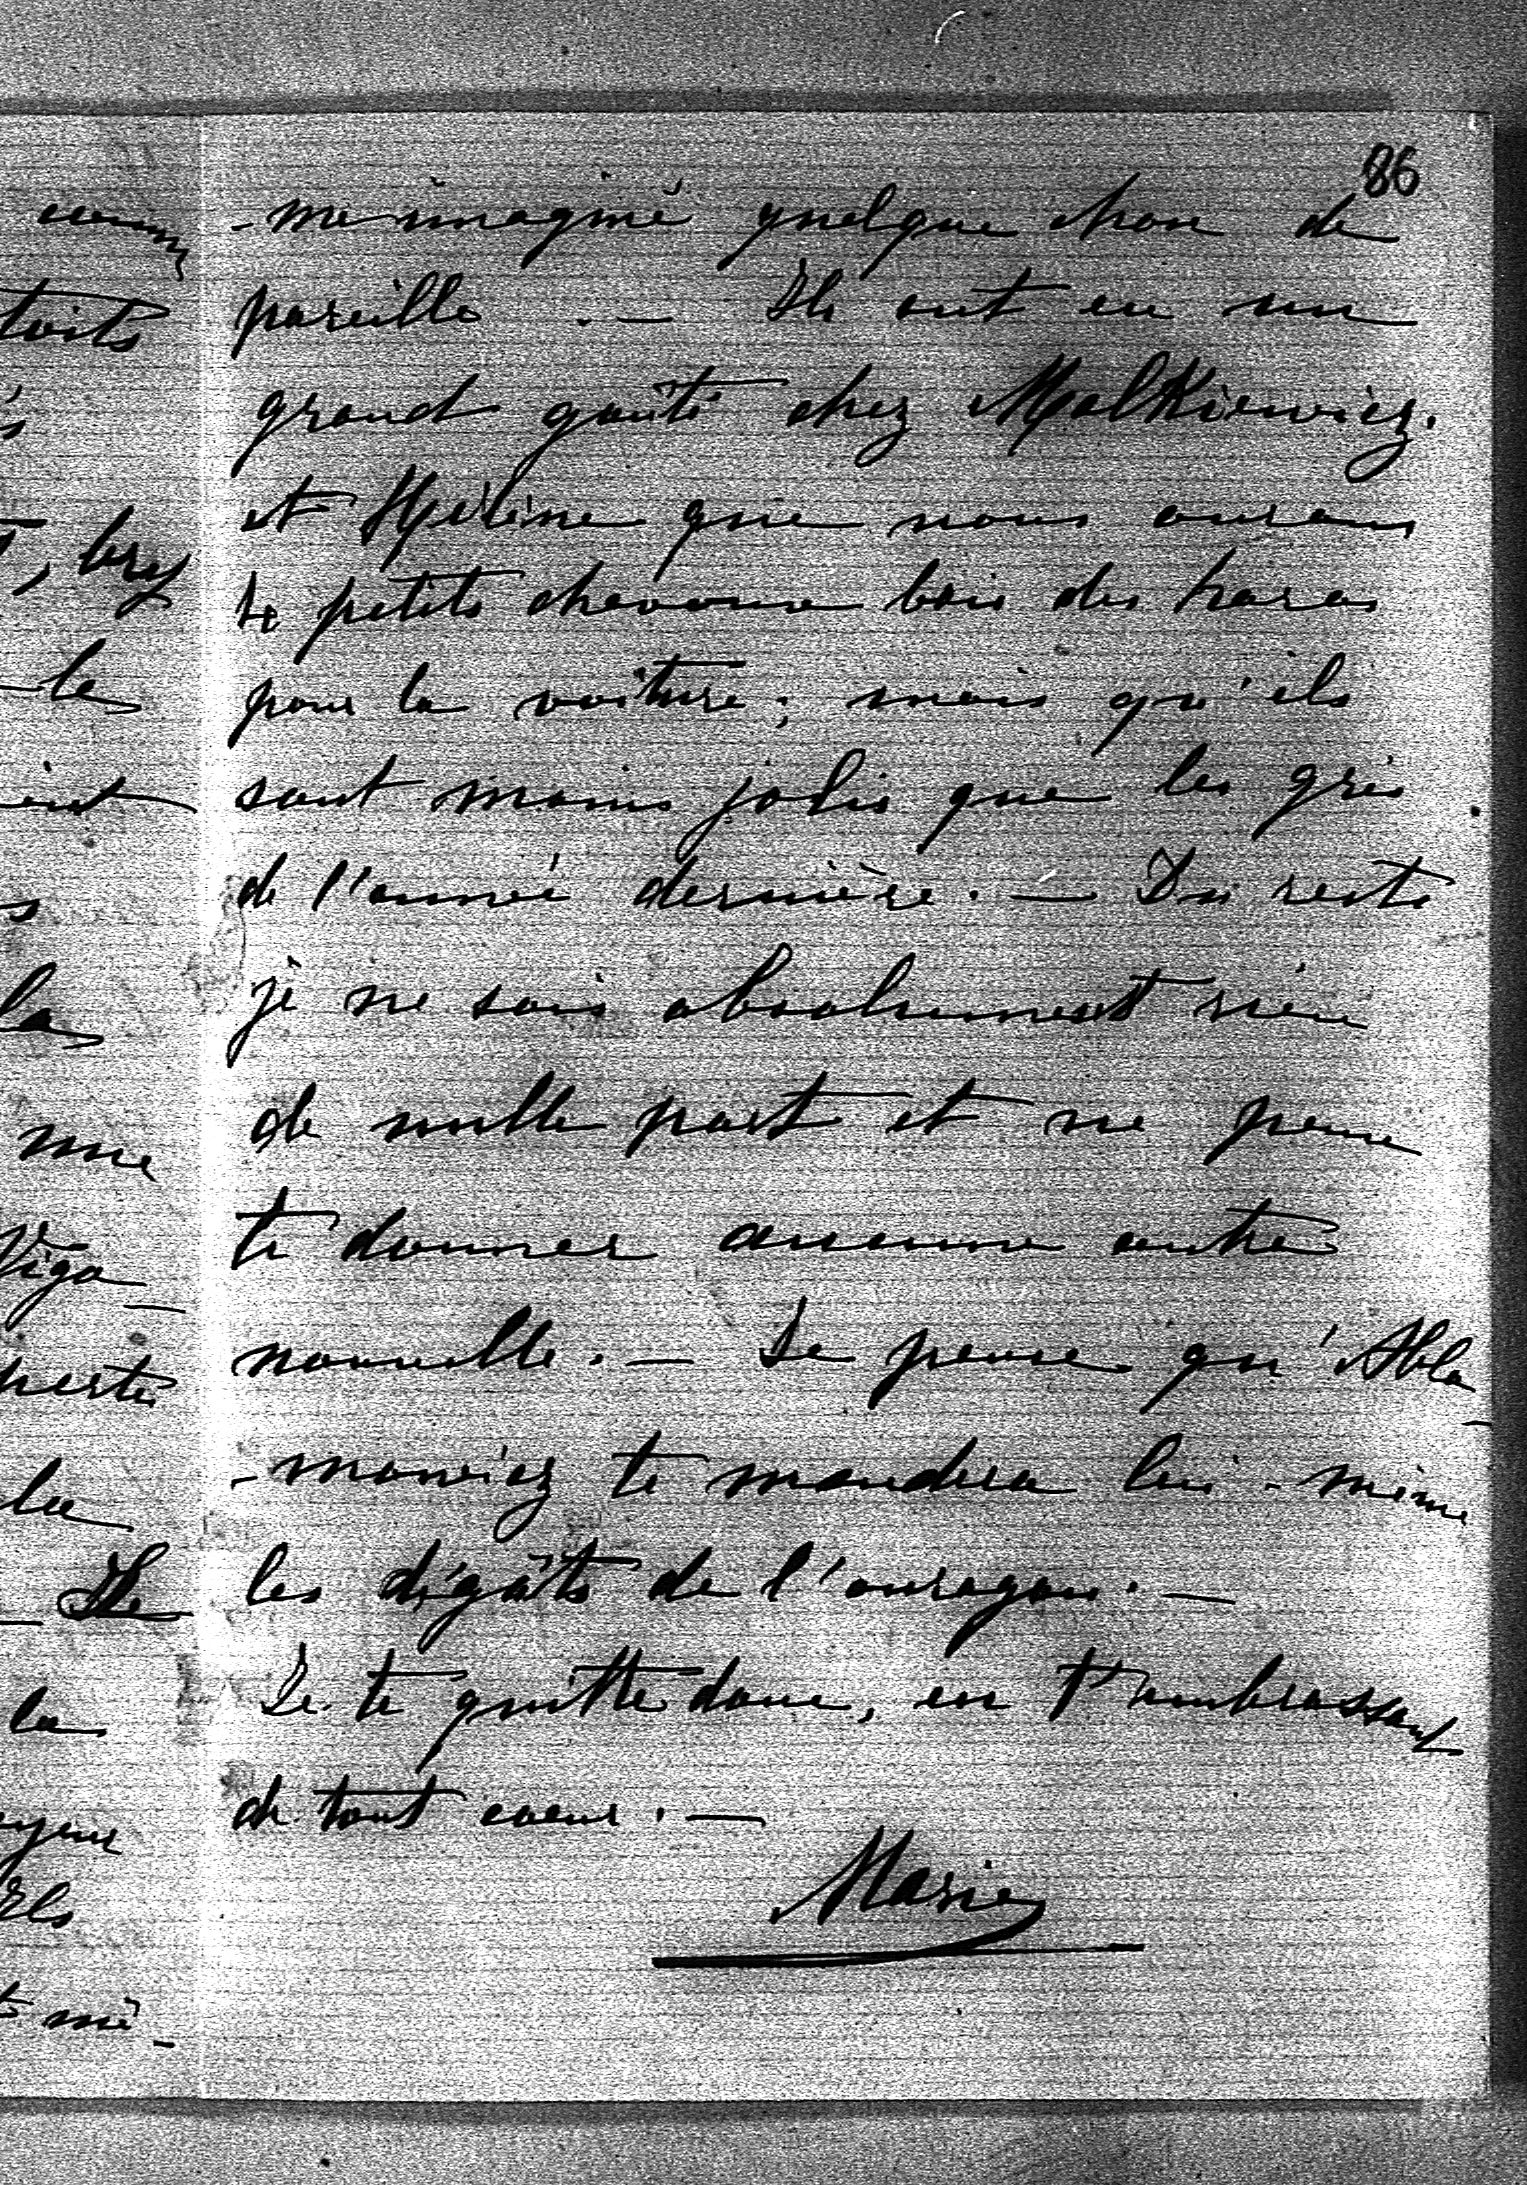 86
-me imaginé quelque chose de
pareille. — Ils ont eu un
grand goûté chez Malkiewicz.
et Hélène que nous aurons
4 petits chevaux bais des haras
pour la voiture; mais qu'ils
sont moins jolis que les gris
de l'année dernière. — Du reste
je ne sais absolument rien
de nulle part et ne peux
te donner aucune autre
nouvelle. — Je pense qu'Abla-
-mowicz te mandera lui-même
les dégâts de l'ouragan. —
Je te quitte donc, en t'embrassant
de tout coeur. —
Marie
toits
, bref
le
la
une
Viga-
perte
la
Ils
la
Ils
mê-